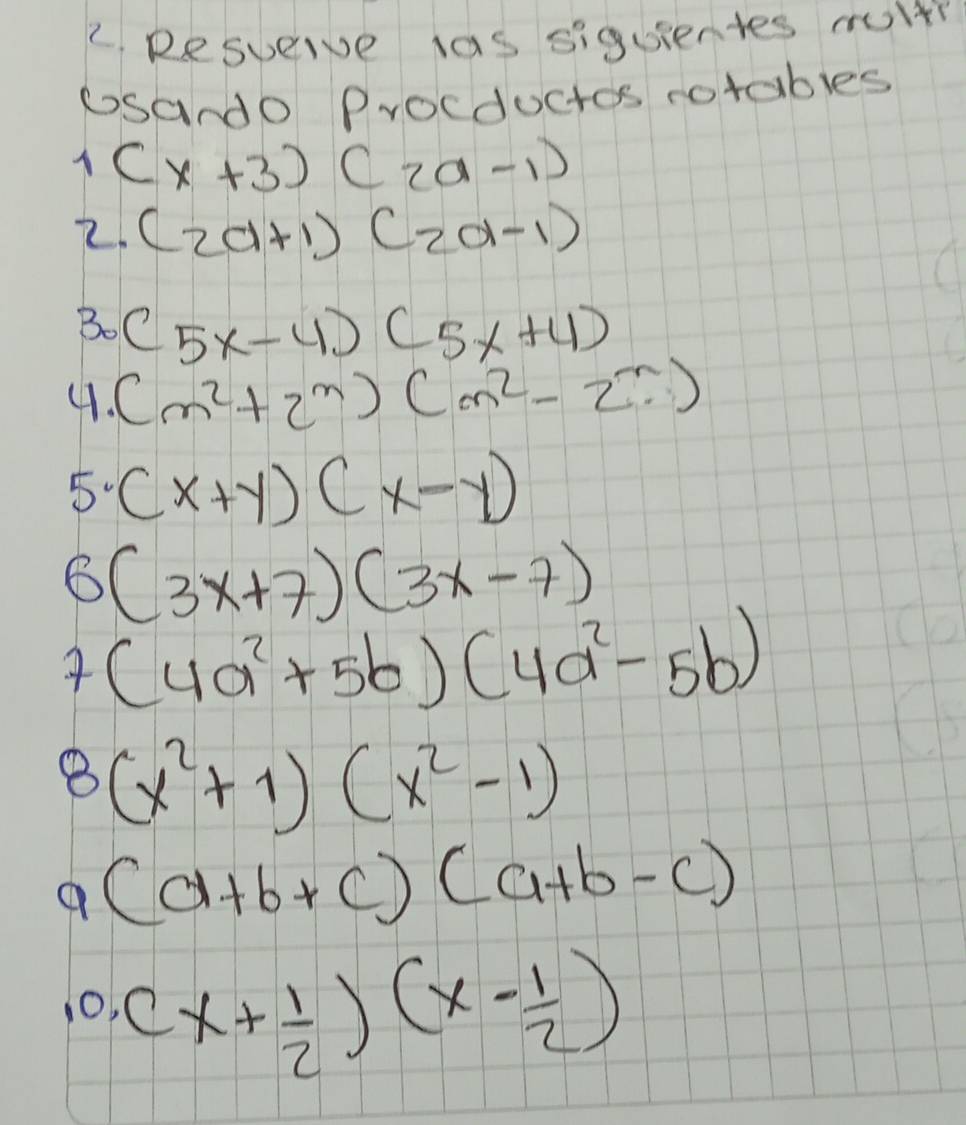 2. Resuelve las siguientes multi
Usando Procductos notables
1 (x+3) (2a-1)
2. (2a+1) (2a-1)
3. (5x-4) (5x+4)
4. (m²+2ⁿ) (m²-2ⁿ)
5. (x+y) (x-y)
6 (3x+7) (3x-7)
7 (4a²+5b) (4a²-5b)
8 (x²+1) (x²-1)
9 (a+b+c) (a+b-c)
10. (x+1/2) (x-1/2)